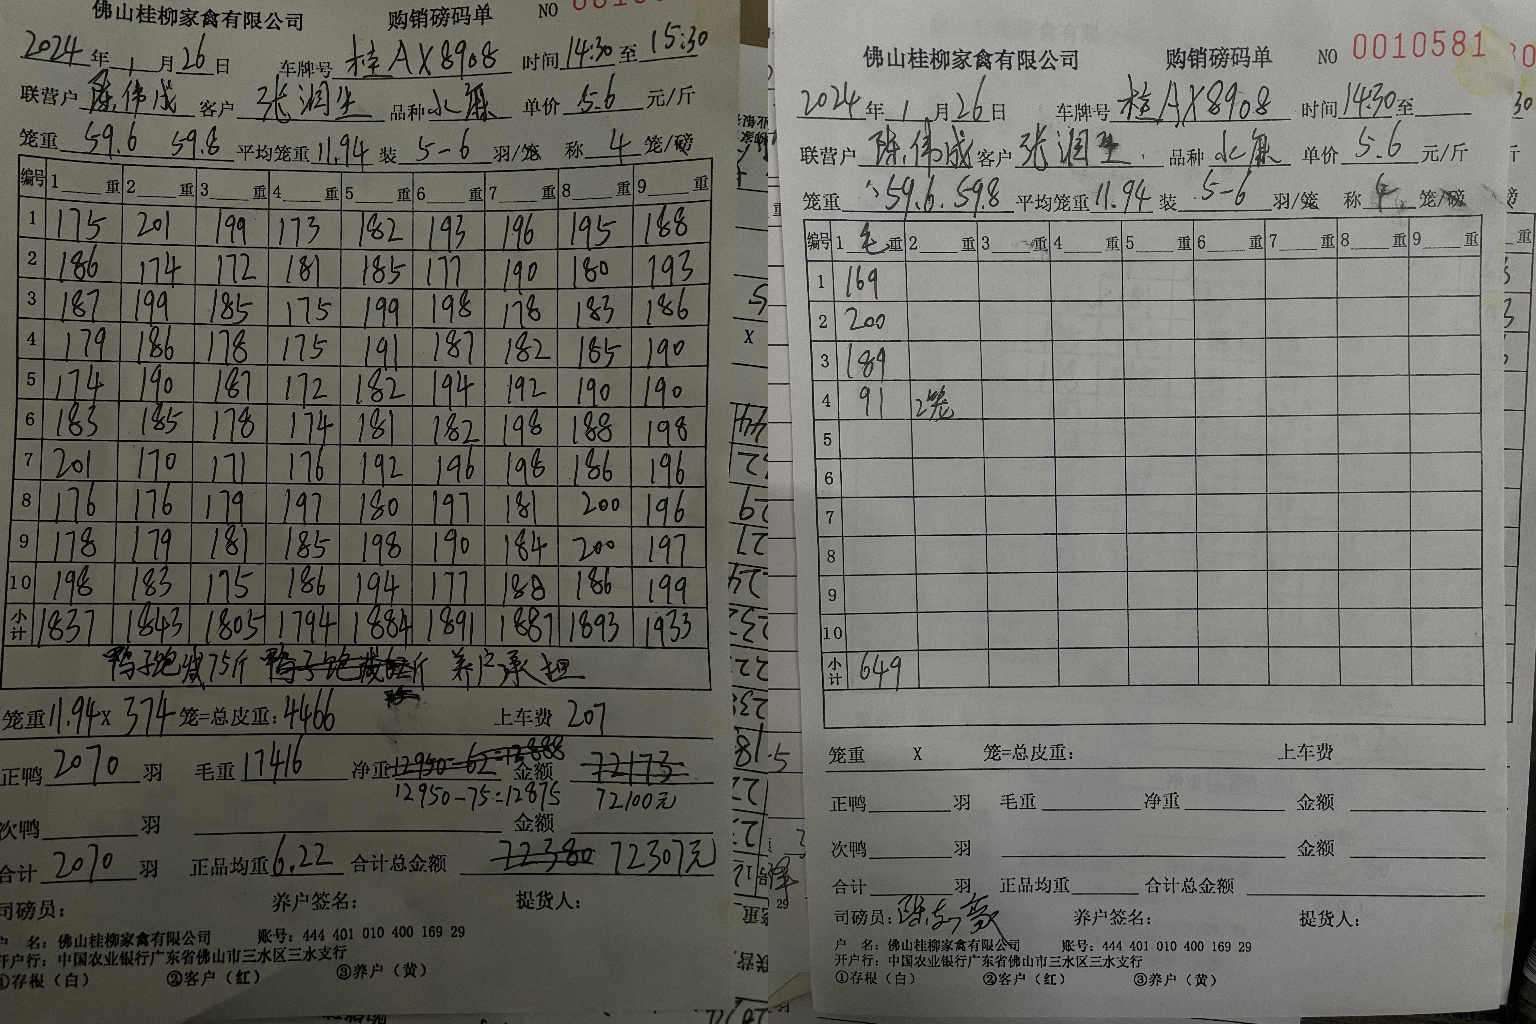 佛山桂柳家禽有限公司 购销磅码单 NO
2024年1月26日 车牌号 桂AX8908 时间14:30至15:30
联营户 陈伟成 客户 张润生 品种 水麻 单价 5.6 元/斤
笼重 59.6 59.8 平均笼重11.94 装 5-6 羽/笼 称 4 笼/磅
编号 1 重 2 重 3 重 4 重 5 重 6 重 7 重 8 重 9 重
1 175 201 199 173 182 193 196 195 188
2 186 174 172 181 185 177 190 180 193
3 187 199 185 175 199 198 178 183 186
4 179 186 178 175 191 187 182 185 190
5 174 190 187 172 182 194 192 190 190
6 183 185 178 174 181 182 198 188 198
7 201 170 171 176 192 196 198 186 196
8 176 176 179 197 180 197 181 200 196
9 178 179 181 185 198 190 184 200 197
10 198 183 175 186 194 177 188 186 199
小计 1837 1843 1805 1794 1884 1891 1887 1893 1933
鸭子饱减75斤 鸭子饱减62斤 养户承担
笼重11.94X 374笼=总皮重:4466 上车费 207
正鸭 2070 羽 毛重 17416 净重 12950-62=12888 金额 72173
12950-75=12875 72100元
次鸭 羽 金额
合计 2070 羽 正品均重 6.22 合计总金额 72380 72307元
司磅员: 养户签名: 提货人:
户 名: 佛山桂柳家禽有限公司 账号: 444 401 010 400 169 29
开户行: 中国农业银行广东省佛山市三水区三水支行
①存根(白) ②客户(红) ③养户(黄)
佛山桂柳家禽有限公司 购销磅码单 NO 0010581
2024年1月26日 车牌号 桂AX8908 时间14:30至
联营户 陈伟成 客户 张润生 品种 水麻 单价 5.6 元/斤
笼重 59.6. 59.8 平均笼重11.94 装 5-6 羽/笼 称 4 笼/磅
编号 1 毛重 2 重 3 重 4 重 5 重 6 重 7 重 8 重 9 重
1 169
2 200
3 189
4 91 2笼
5
6
7
8
9
10
小计 649
笼重 X 笼=总皮重: 上车费
正鸭 羽 毛重 净重 金额
次鸭 羽 金额
合计 羽 正品均重 合计总金额
司磅员: 养户签名: 提货人:
户 名: 佛山桂柳家禽有限公司 账号: 444 401 010 400 169 29
开户行: 中国农业银行广东省佛山市三水区三水支行
①存根(白) ②客户(红) ③养户(黄)